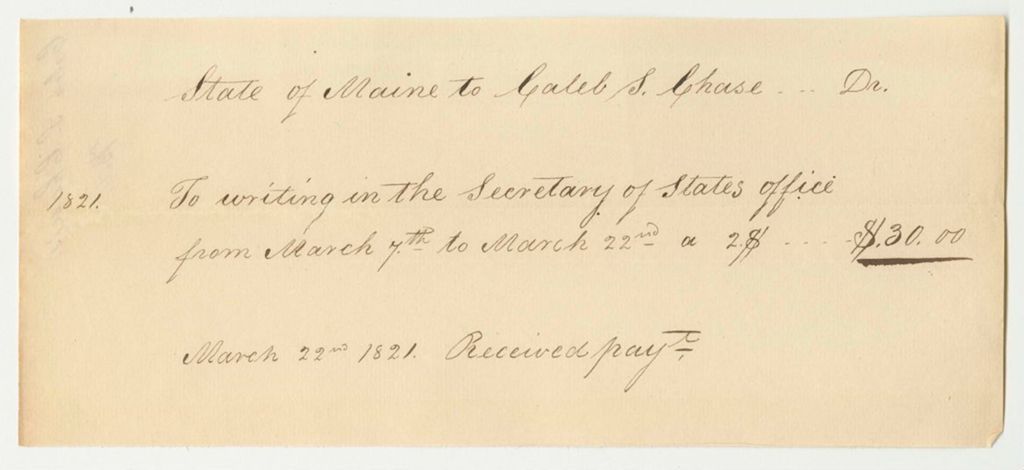 State of Maine to Caleb S. Chase ... Dr.
1821. To writing in the Secretary of States office
from March 7th to March 22nd a 2$ .... $.30.00
March 22nd 1821. Received payt.